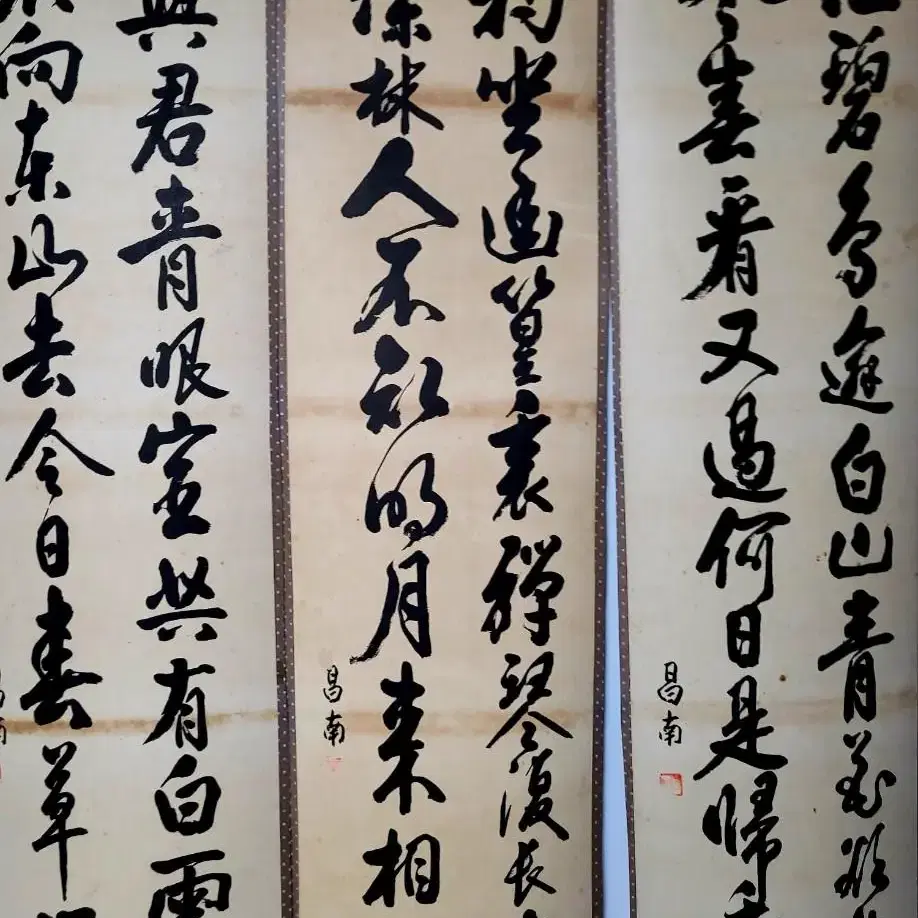 江碧鳥逾白山青花欲
春看又過何日是歸
昌南
獨坐幽篁裏彈琴復長
深林人不知明月來相
昌南
與君青眼客共有白雲
不向東山去今日春草